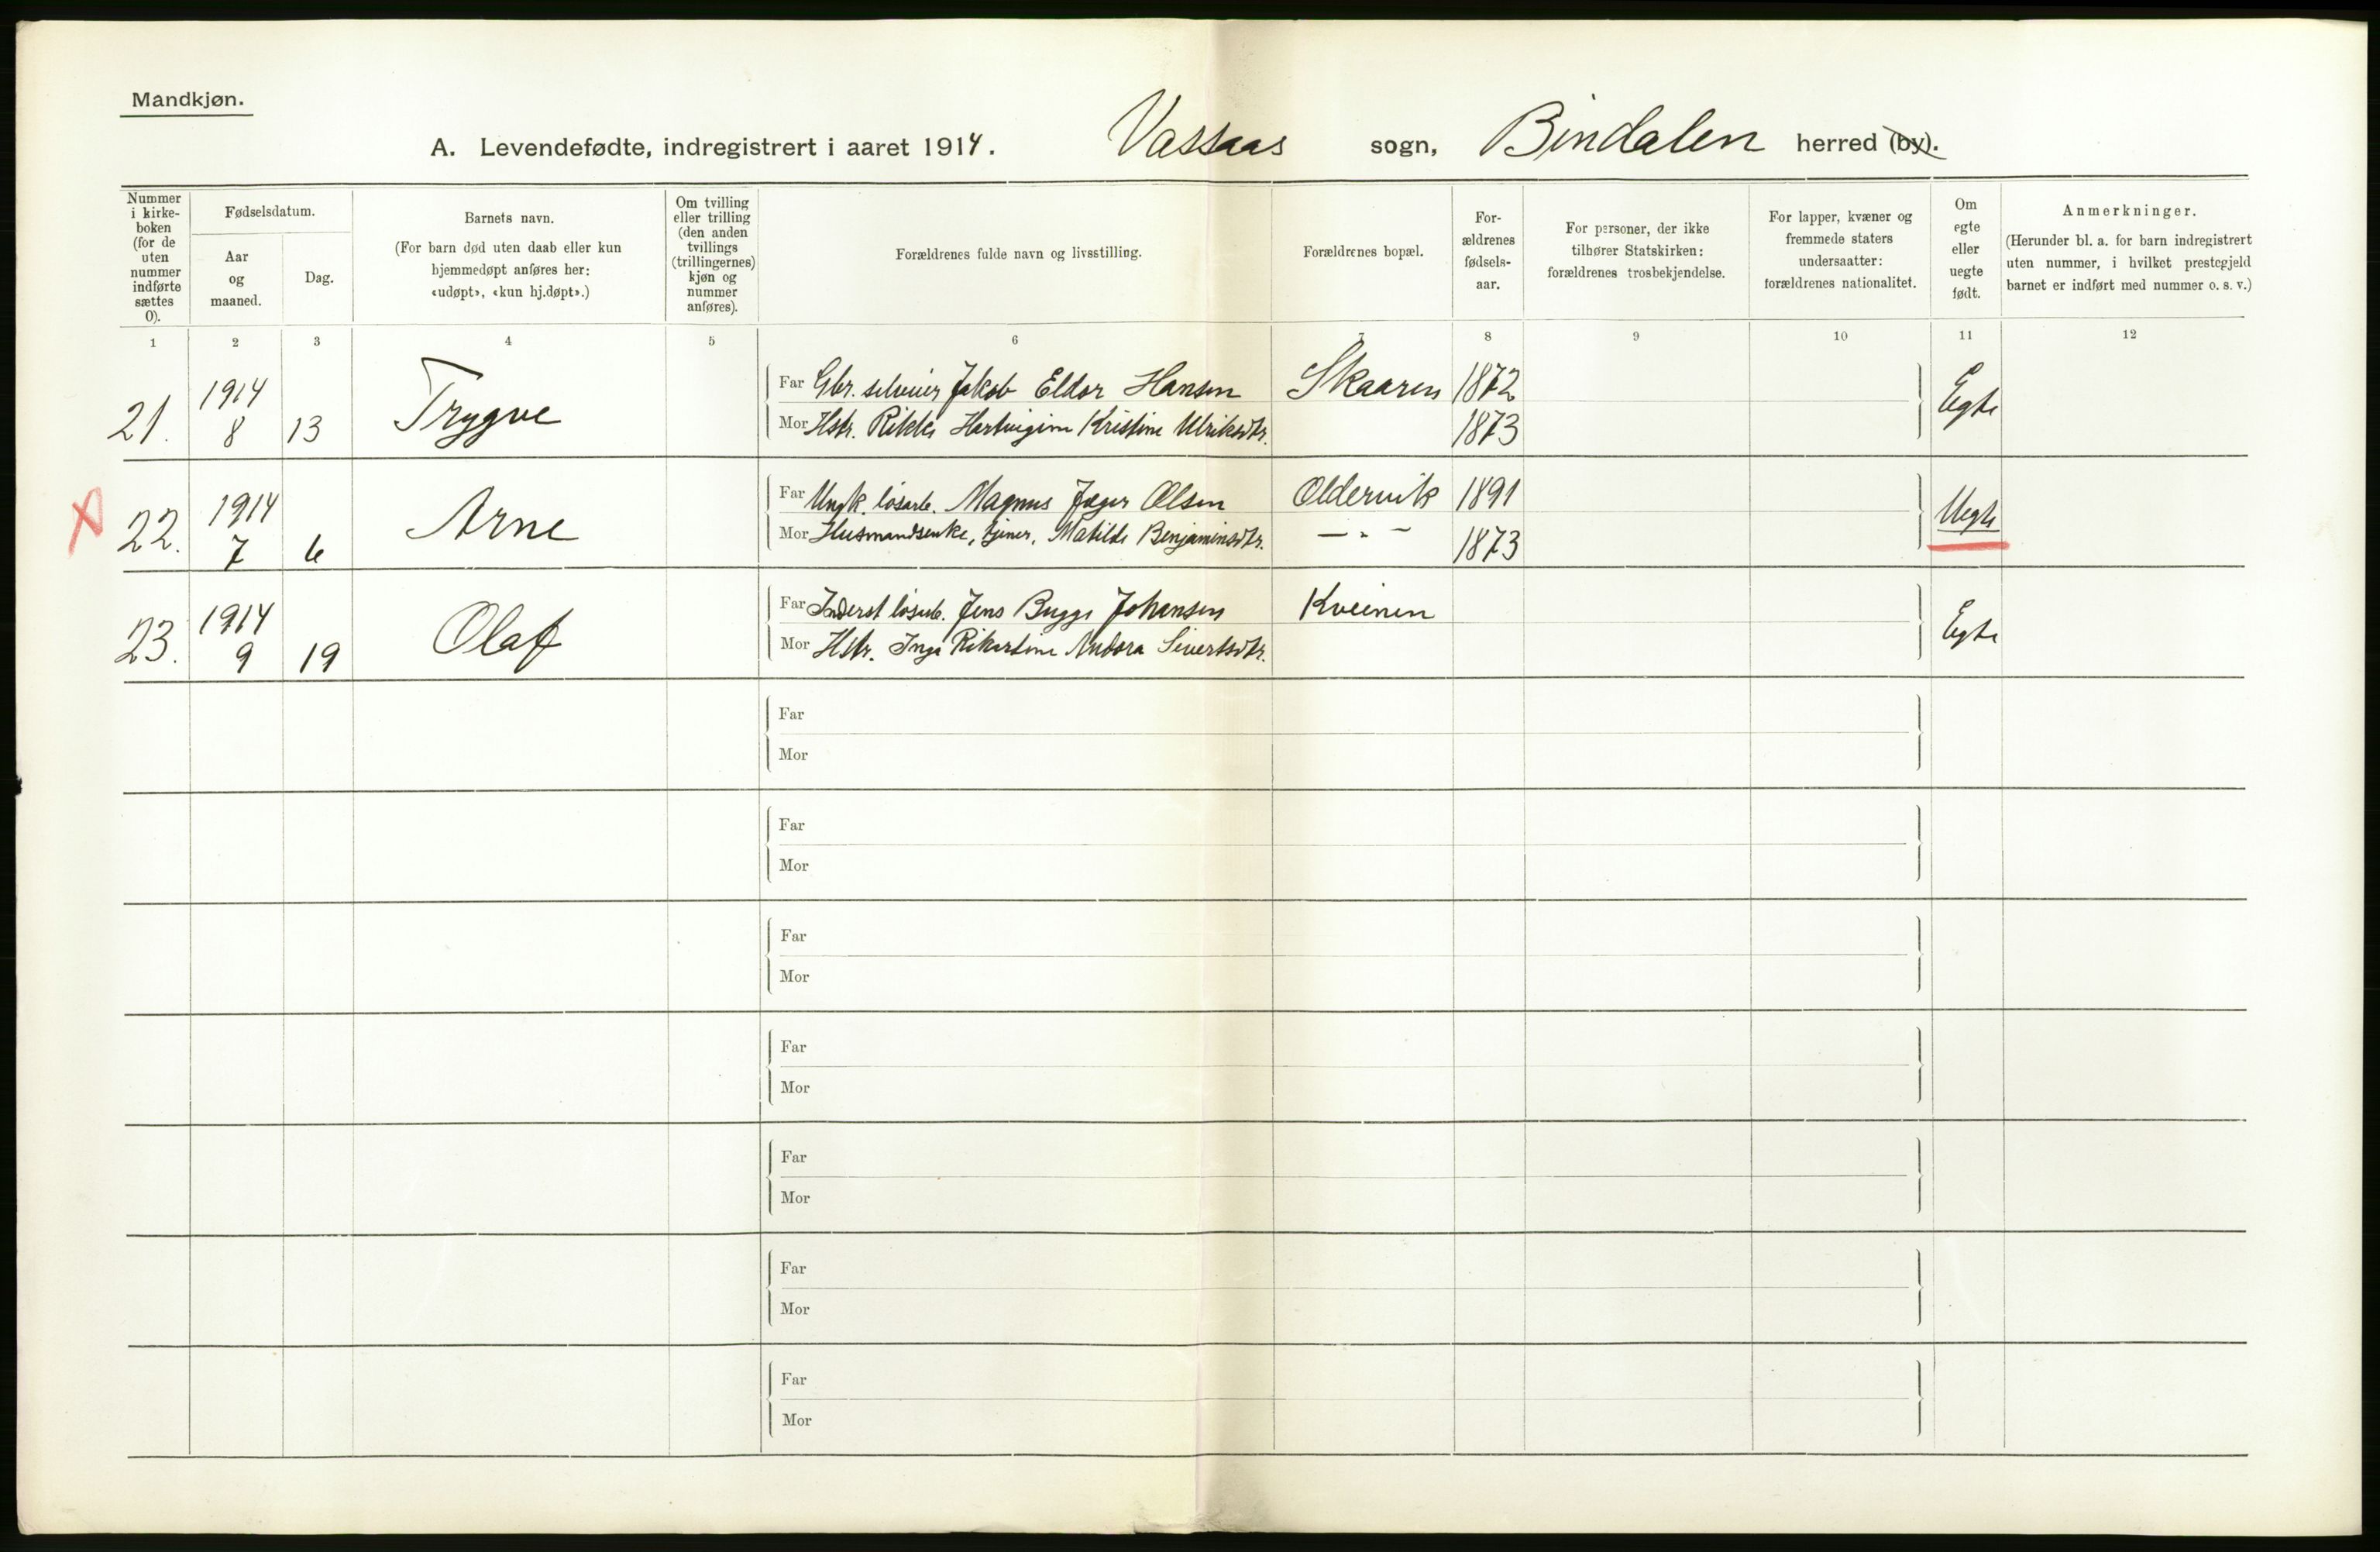 Mandkjøn.
A. Levendefødte, indregistrert i aaret 1914. Vassaas sogn, Bindalen herred (by).
Nummer i kirke-boken (for de uten nummer indførte sættes 0).
Fødselsdatum.
Aar og maaned.
Dag.
Barnets navn.
(For barn død uten daab eller kun hjemmedøpt anføres her: «udøpt», «kun hj.døpt».)
Om tvilling eller trilling (den anden tvillings (trillingernes) kjøn og nummer anføres).
Forældrenes fulde navn og livsstilling.
Forældrenes bopæl.
For-ældrenes fødsels-aar.
For personer, der ikke tilhører Statskirken: forældrenes trosbekjendelse.
For lapper, kvæner og fremmede staters undersaatter: forældrenes nationalitet.
Om egte eller uegte født.
Anmerkninger.
(Herunder bl. a. for barn indregistrert uten nummer, i hvilket prestegjeld barnet er indført med nummer o. s. v.)
1 2 3 4 5 6 7 8 9 10 11 12
21. 1914 8 13 Trygve
Far Gbr. selveier Jakob Eldor Hansen Skaaren 1872 Egte
Mor Hstr. Hartvigine Kristine Ulriksdtr. 1873
X 22. 1914 7 6 Arne
Far Ungk. løsarb. Magnus Jæger Olsen Oldervik 1891 Uegte
Mor Husmandsenke, tjener, Matilde Benjaminsdtr. — " — 1873
23. 1914 9 19 Olaf
Far Inderst løsarb. Jens Bugge Johansen Kveinen Egte
Mor Hstr. Inga Rikartine Andora Sivertsdtr.
Far
Mor
Far
Mor
Far
Mor
Far
Mor
Far
Mor
Far
Mor
Far
Mor